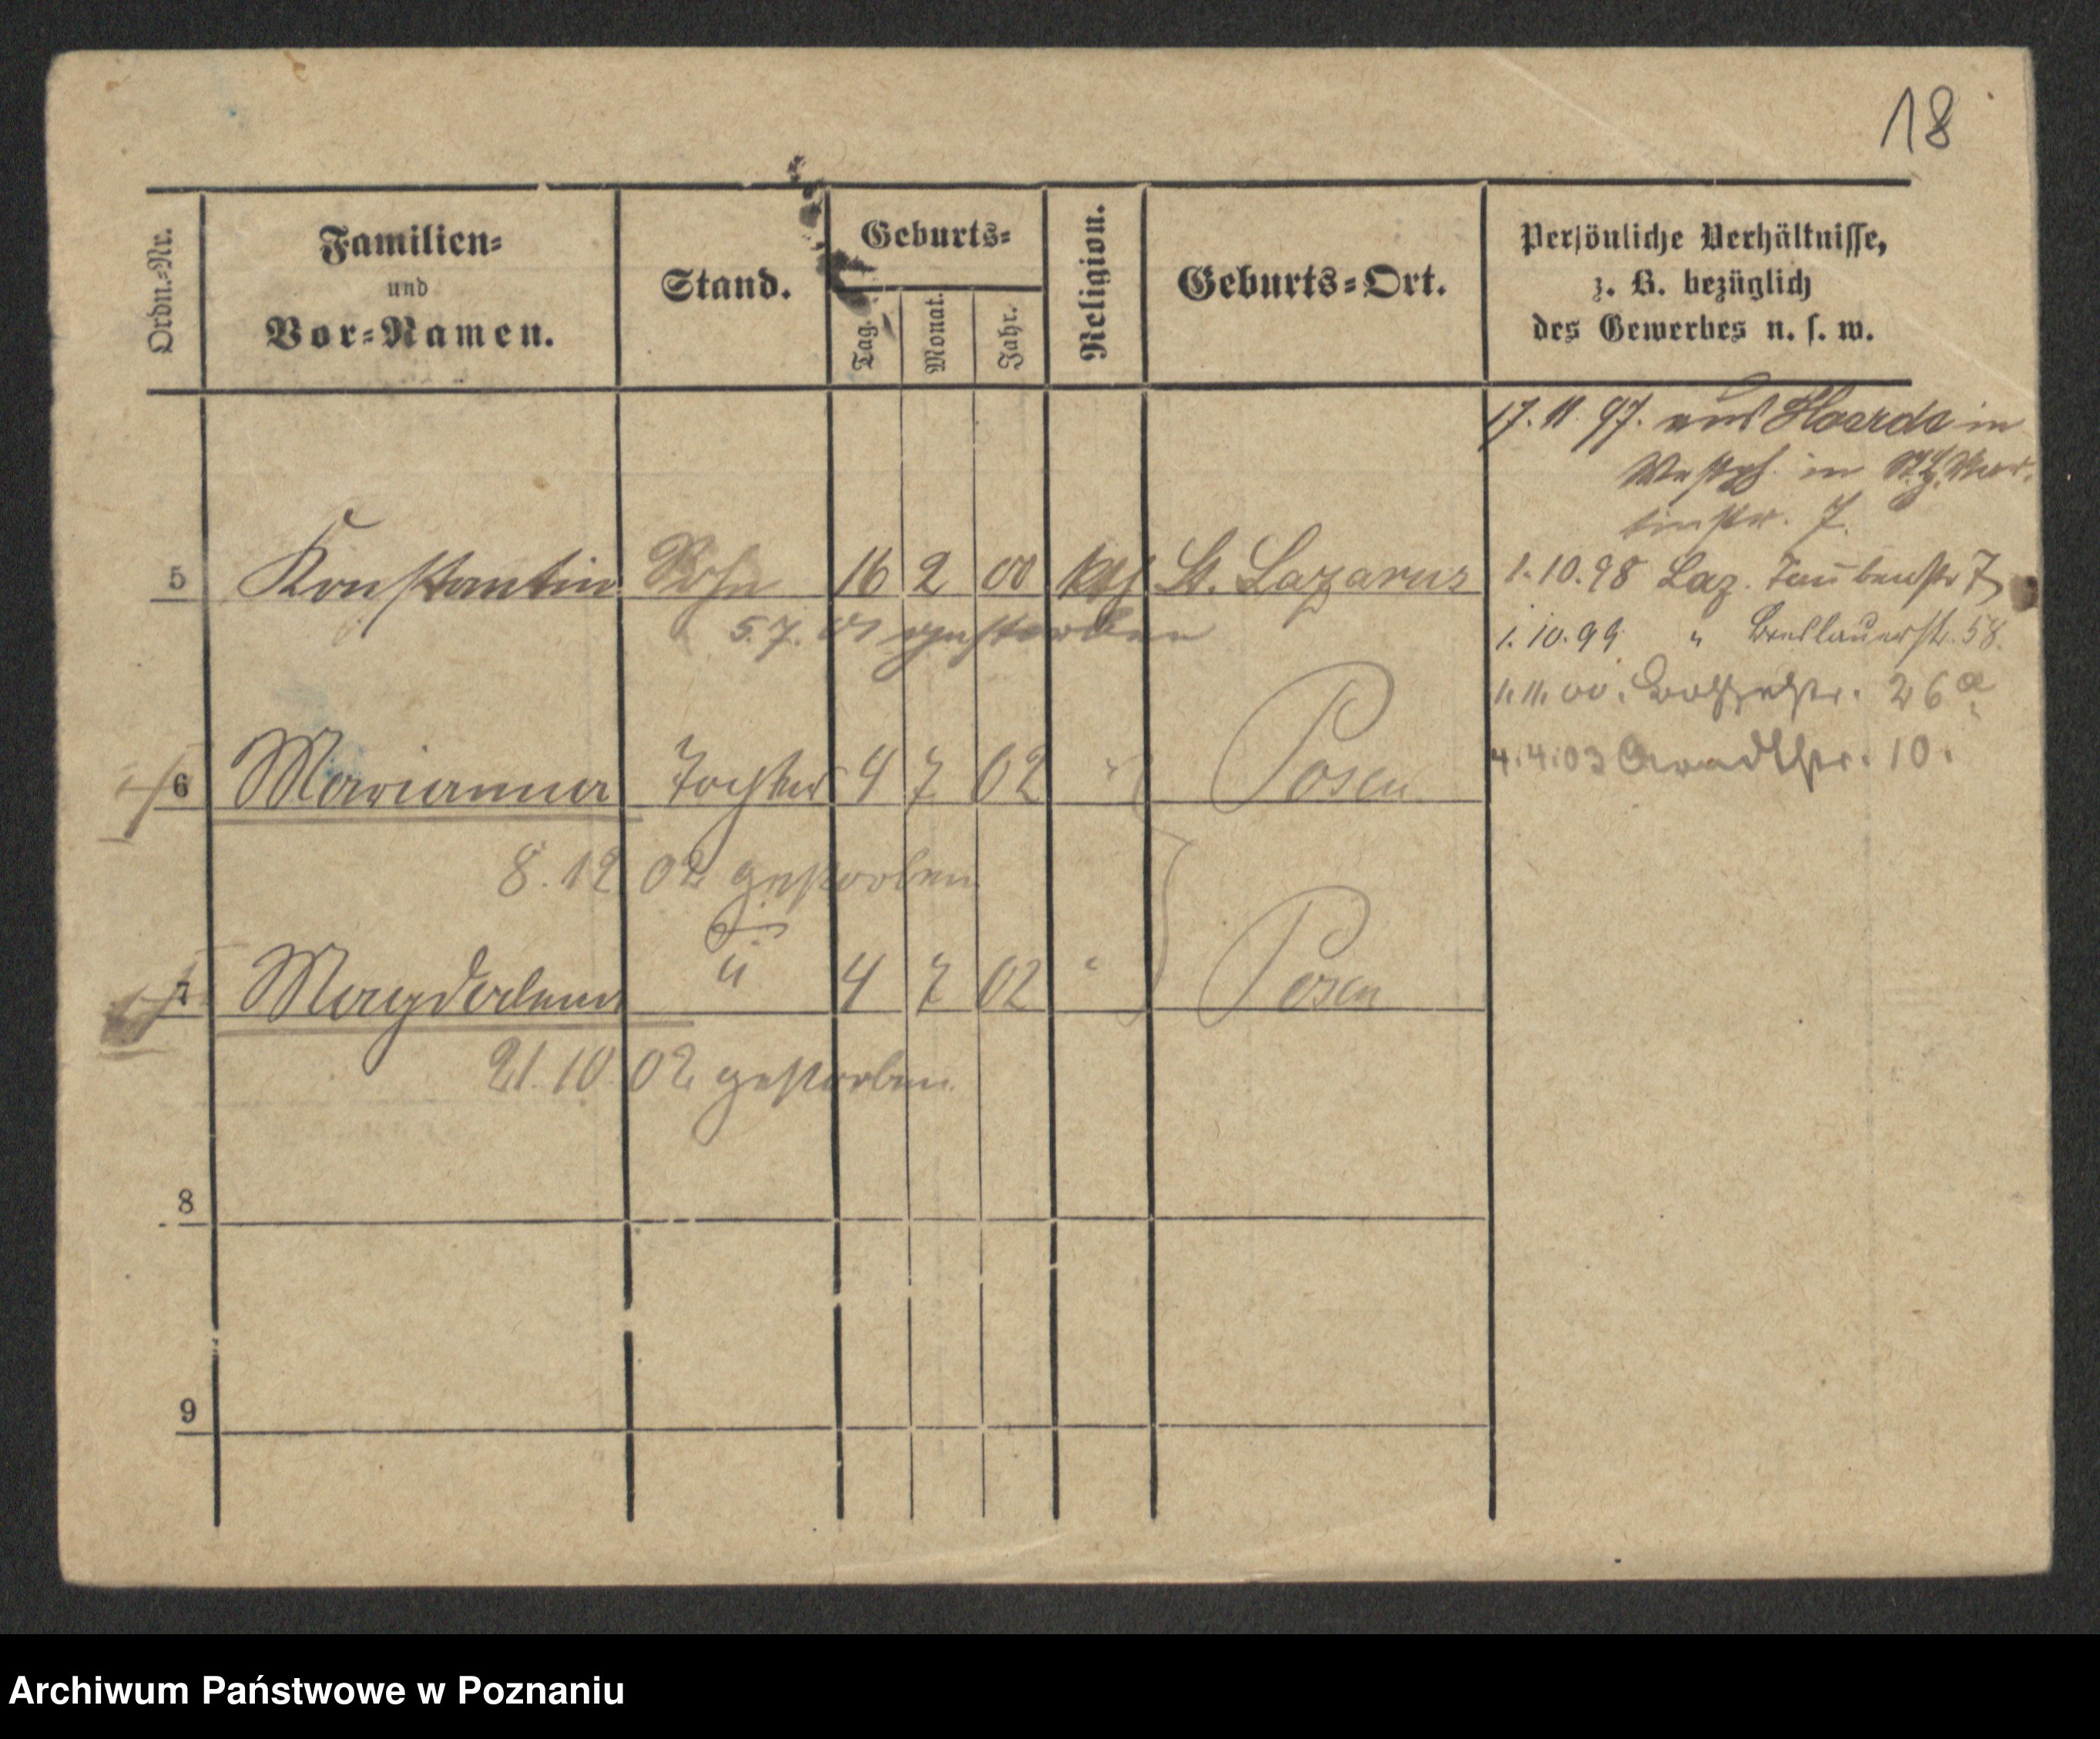 18
Ordn.-Nr.
Familien-
und
Vor-Namen.
Stand.
Geburts-
Tag.
Monat.
Jahr.
Religion.
Geburts-Ort.
Persönliche Verhältnisse,
z. B. bezüglich
des Gewerbes u. s. w.
17. 11. 97. aus Hoerde in
Westph. in
tinstr. 7.
5 Konstantin Sohn 16 2 00 kth St. Lazarus
1.10.98 Laz. Taubenstr 7
5.7. 01 gestorben
1.10.99 " Breslauerstr. 58.
1.11.00. 26a
6 Marianna Tochter 4 7 02 " Posen
4.4.03 10.
8.12 02 gestorben
7 Magdalena " 4 7 02 " Posen
21.10 02 gestorben.
8
9
Archiwum Państwowe w Poznaniu